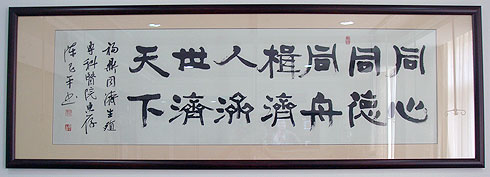 同心
同德
同舟
楫濟
人濟
世濟
天下
同濟生殖
專科醫院惠存